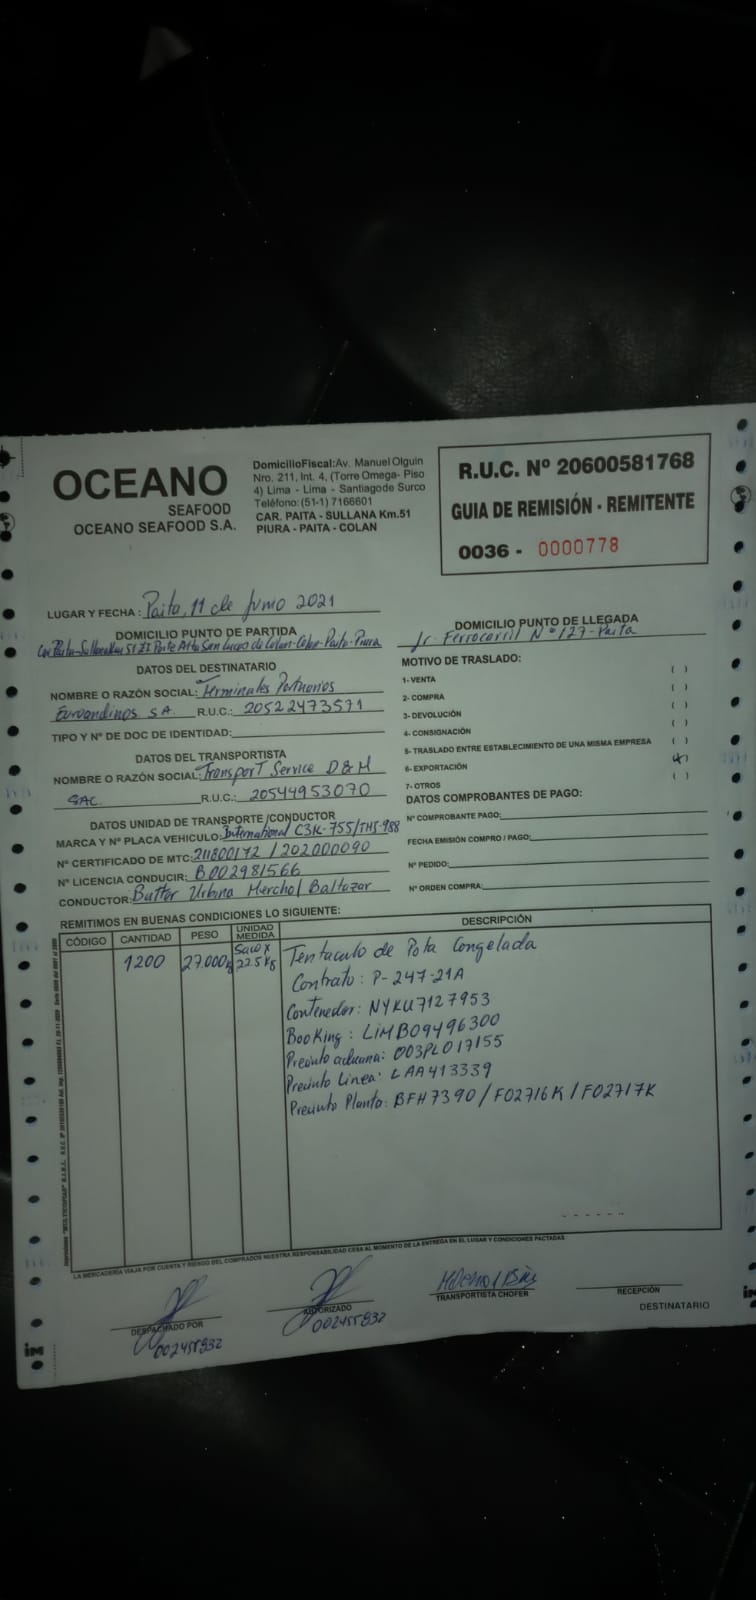 OCEANO
SEAFOOD
OCEANO SEAFOOD S.A.
DomicilioFiscal: Av. Manuel Olguin
Nro. 211, Int. 4, (Torre Omega- Piso
4) Lima - Lima - Santiagode Surco
Teléfono: (51-1) 7166601
CAR. PAITA - SULLANA Km.51
PIURA - PAITA - COLAN
R.U.C. Nº 20600581768
GUIA DE REMISIÓN - REMITENTE
0036 - 0000778
LUGAR Y FECHA : Paita, 11 de Junio 2021
DOMICILIO PUNTO DE PARTIDA
San Lucas de Colan-Colan-Paita-Piura
DOMICILIO PUNTO DE LLEGADA
Jr. Ferrocarril Nº 127-Paita
DATOS DEL DESTINATARIO
NOMBRE O RAZÓN SOCIAL: Terminales Portuarios
Euroandinos S.A. R.U.C.: 20522473571
TIPO Y Nº DE DOC DE IDENTIDAD:
MOTIVO DE TRASLADO:
1- VENTA ( )
2- COMPRA ( )
3- DEVOLUCIÓN ( )
4- CONSIGNACIÓN ( )
5- TRASLADO ENTRE ESTABLECIMIENTO DE UNA MISMA EMPRESA ( )
6- EXPORTACIÓN (X)
7- OTROS ( )
DATOS DEL TRANSPORTISTA
NOMBRE O RAZÓN SOCIAL: Transport Service D&M
SAC. R.U.C.: 20544953070
DATOS COMPROBANTES DE PAGO:
Nº COMPROBANTE PAGO:
FECHA EMISIÓN COMPRO / PAGO:
Nº PEDIDO:
Nº ORDEN COMPRA:
DATOS UNIDAD DE TRANSPORTE /CONDUCTOR
MARCA Y Nº PLACA VEHICULO: International C3K-755/THS-988
Nº CERTIFICADO DE MTC: 211800172 / 202000090
Nº LICENCIA CONDUCIR: B002981566
CONDUCTOR: Urbina Baltazar
REMITIMOS EN BUENAS CONDICIONES LO SIGUIENTE:
CÓDIGO CANTIDAD PESO UNIDAD MEDIDA DESCRIPCIÓN
1200 27.000kg Saco x 22.5 Kg Tentaculo de Pota Congelada
Contrato: P-247-21A
Contenedor: NYKU7127953
Booking: LIMB09496300
Precinto aduana: 003PL017155
Precinto Linea: LAA413339
Precinto Planta: BFH7390 / F02716K / F02717K
LA MERCADERÍA VIAJA POR CUENTA Y RIESGO DEL COMPRADOS NUESTRA RESPONSABILIDAD CESA AL MOMENTO DE LA ENTREGA EN EL LUGAR Y CONDICIONES PACTADAS
DESPACHADO POR
002455832
AUTORIZADO
002455832
TRANSPORTISTA CHOFER
RECEPCIÓN
DESTINATARIO